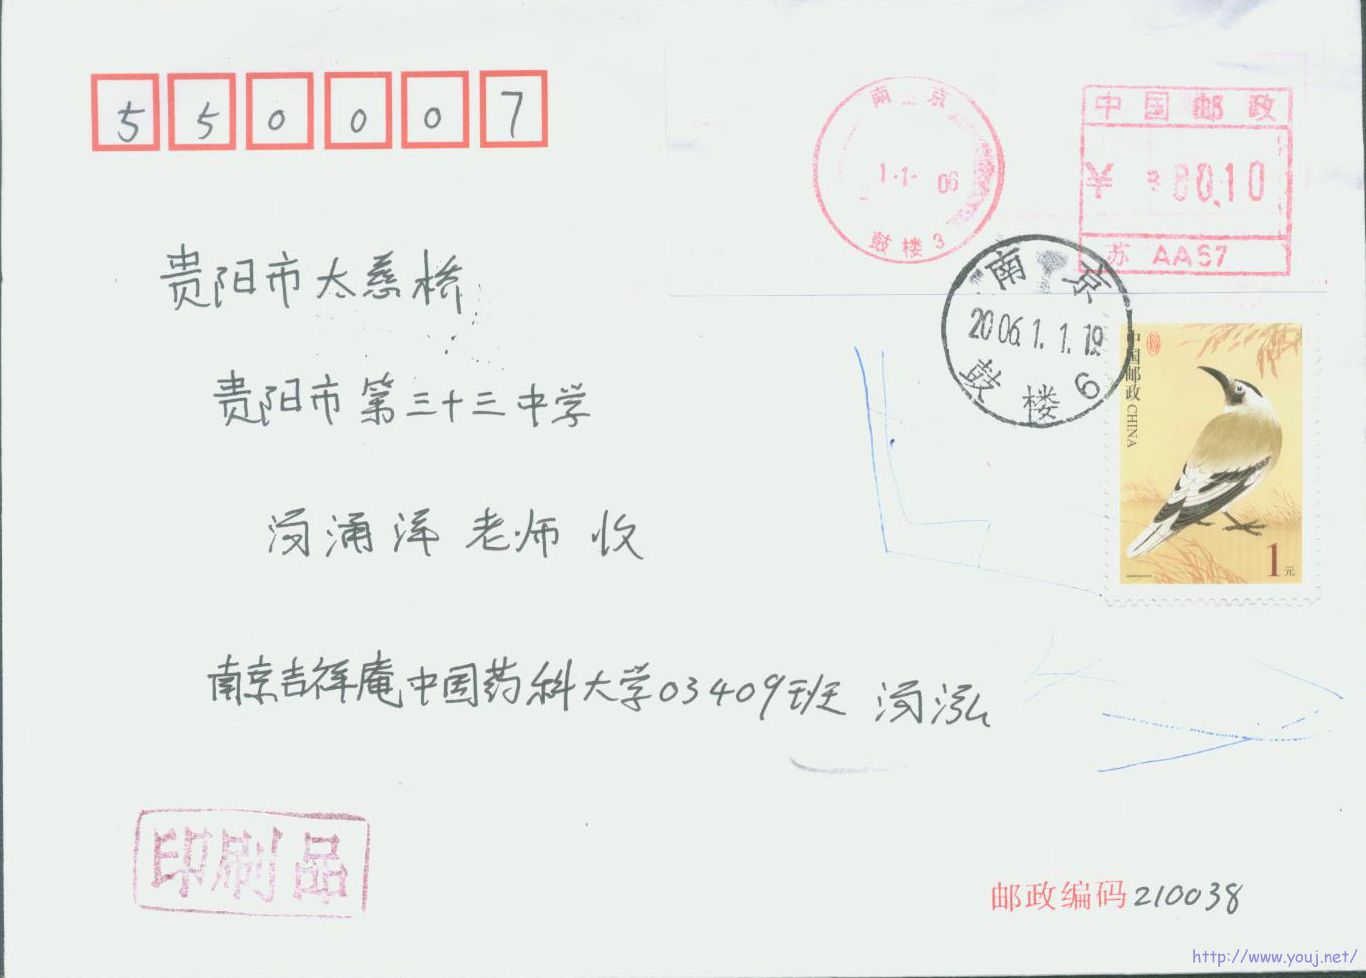 550007
南京
1·1·06
鼓楼3
中国邮政
¥ 00.10
苏 AA57
南京
2006.1.1.19
鼓楼6
中国邮政 CHINA
1元
贵阳市太慈桥
贵阳市第三十三中学
汤涌泽 老师 收
南京吉祥庵中国药科大学03409班 汤泓
印刷品
邮政编码210038
http://www.youj.net/